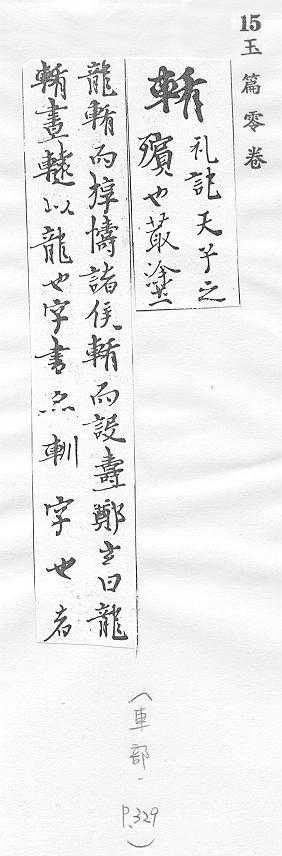 15 玉篇零卷
輴 礼記天子之
殯也菆塗
龍輴而椁幬諸侯輴而設幬鄭玄曰龍
輴畫轅以龍也字書亦輁字也者
(車部 - P.329)